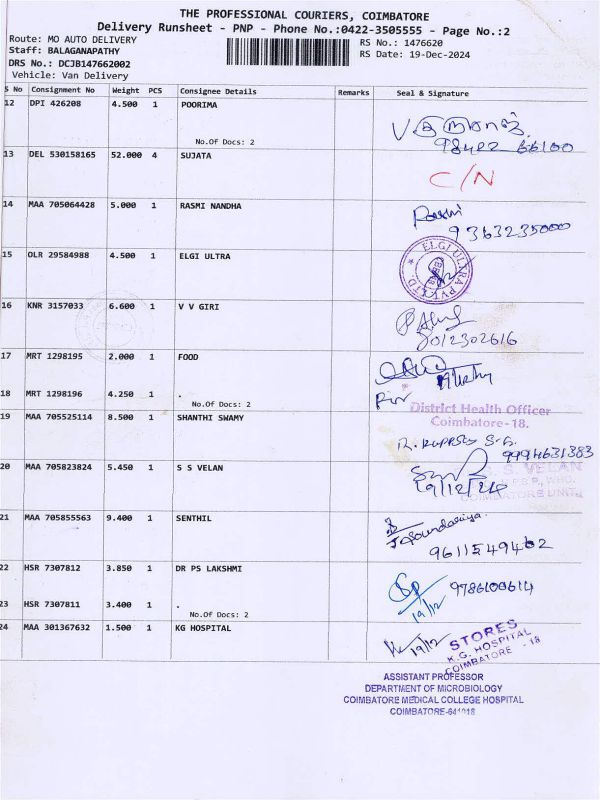 THE PROFESSIONAL COURIERS, COIMBATORE
Delivery Runsheet - PNP - Phone No.:0422-3505555 - Page No.:2
Route: MO AUTO DELIVERY
RS No.: 1476620
Staff: BALAGANAPATHY
RS Date: 19-Dec-2024
DRS No.: DCJB147662002
Vehicle: Van Delivery
S No Consignment No Weight PCS Consignee Details Remarks Seal & Signature
12 DPI 426208 4.500 1 POORIMA
No.Of Docs: 2
98422 66100
13 DEL 530158165 52.000 4 SUJATA
C/N
14 MAA 705064428 5.000 1 RASMI NANDHA
Rasmi
9363235000
15 OLR 29584988 4.500 1 ELGI ULTRA
ELGI ULTRA PVT LTD
16 KNR 3157033 6.600 1 V V GIRI
8012302616
17 MRT 1298195 2.000 1 FOOD
18 MRT 1298196 4.250 1 .
No.Of Docs: 2
District Health Officer
Coimbatore-18.
19 MAA 705525114 8.500 1 SHANTHI SWAMY
9994631383
20 MAA 705823824 5.450 1 S S VELAN
S. VELAN
19/12/24
COIMBATORE
21 MAA 705855563 9.400 1 SENTHIL
Soundariya
9611549402
22 HSR 7307812 3.850 1 DR PS LAKSHMI
9786100614
19/12
23 HSR 7307811 3.400 1 .
No.Of Docs: 2
24 MAA 301367632 1.500 1 KG HOSPITAL
19/12
STORES
K.G. HOSPITAL
COIMBATORE - 18
ASSISTANT PROFESSOR
DEPARTMENT OF MICROBIOLOGY
COIMBATORE MEDICAL COLLEGE HOSPITAL
COIMBATORE-641018